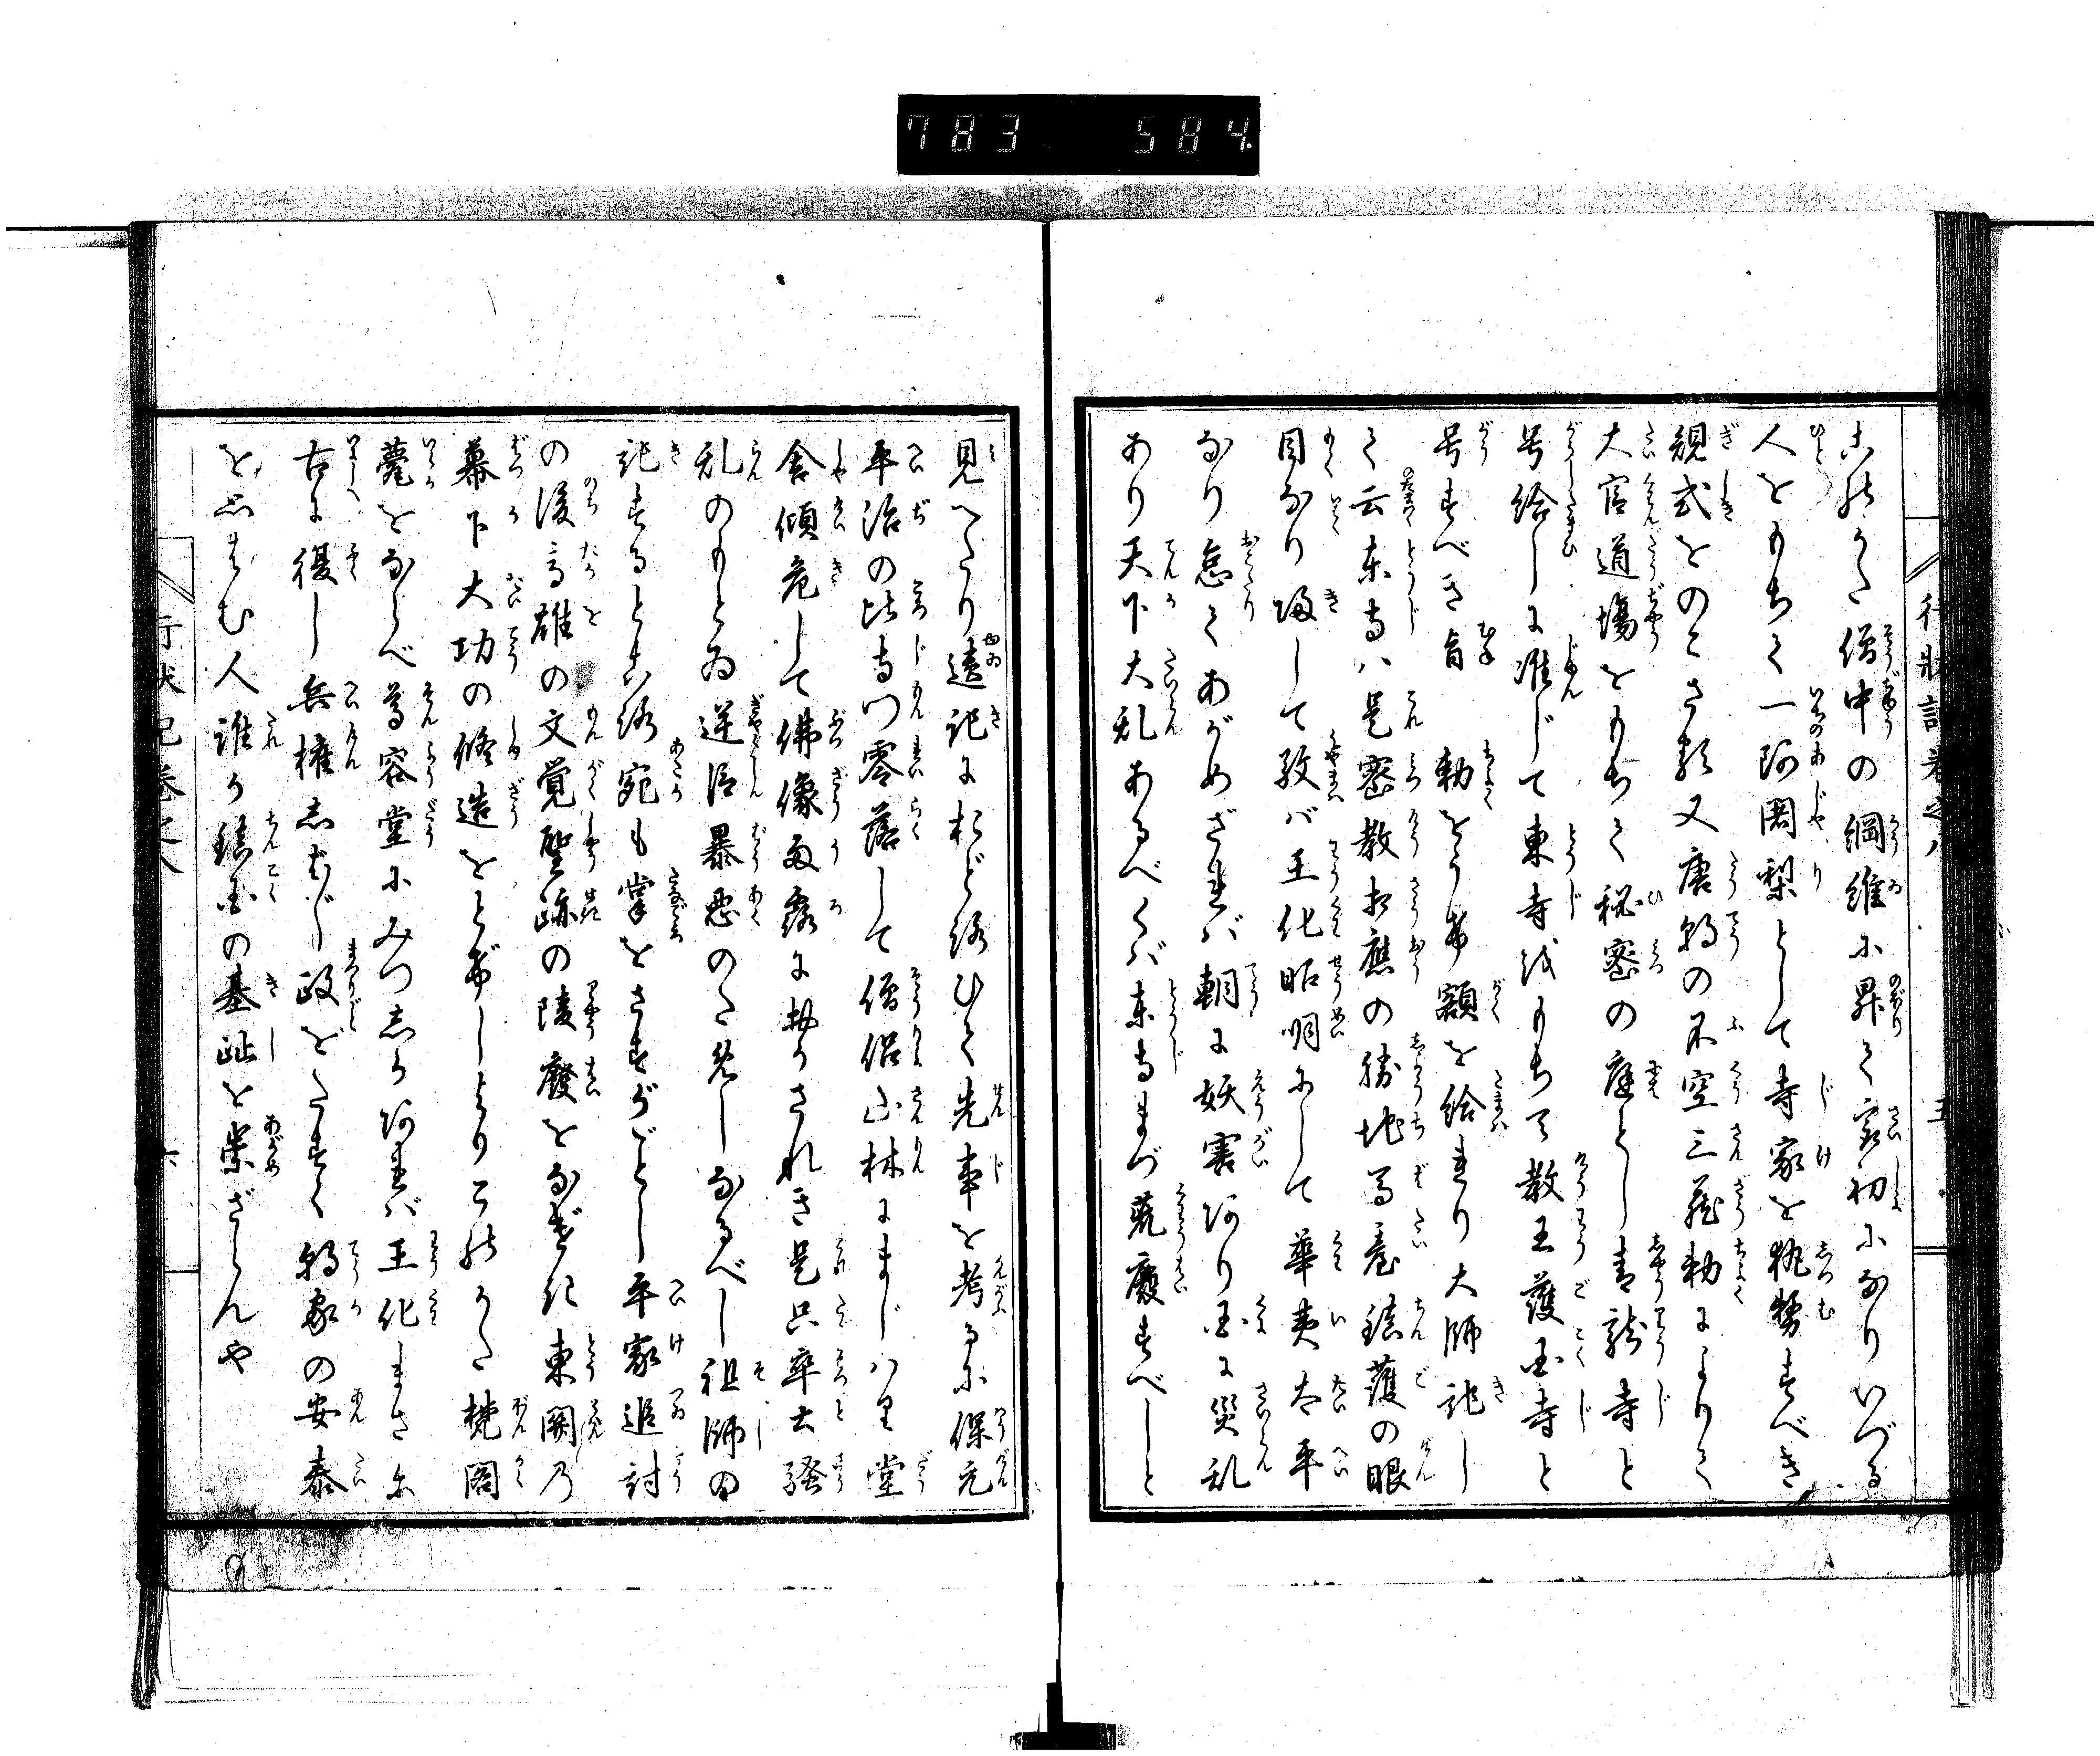 783 584.
行状記巻之八 五
これらこそ僧中の綱維に昇て官初になりいづる
人をもちて一阿闍梨として寺家を執務すべき
規式をのこさる又唐朝の不空三蔵勅によりて
大官道場をもちて秘密の庭とし青龍寺と
号給しに准じて東寺をもちて教王護国寺と
号すべき旨 勅をうけ額を給はり大師記し
て云東寺ハ是密教相應の勝地馬臺鎮護の眼
目なり帰して敬バ王化昭明にして華夷太平
なり怠てあがめざれバ朝に妖害あり国に災乱
あり天下大乱あるべくバ東寺まづ荒廢すべしと
見へたり遺記におどろひて先事を考るに保元
平治の比寺門零落して僧侶山林にまじハり堂
舎傾危して佛像雨露にをかされき是只率土騒
乱のもとゐ逆臣暴悪のためしなるべし祖師の
記するところ宛も掌をさすがごとし平家追討
の後高雄の文覚聖跡の陵廢をなげき東関乃
幕下大功の修造をとげしよりこのかた梵閣
甍をならべ尊容堂にみつしかれバ王化まさに
古に復し兵権しばし政をたすく朝家の安泰
をおもはむ人誰か鎮国の基趾を崇ざらんや
行状記巻之八 六